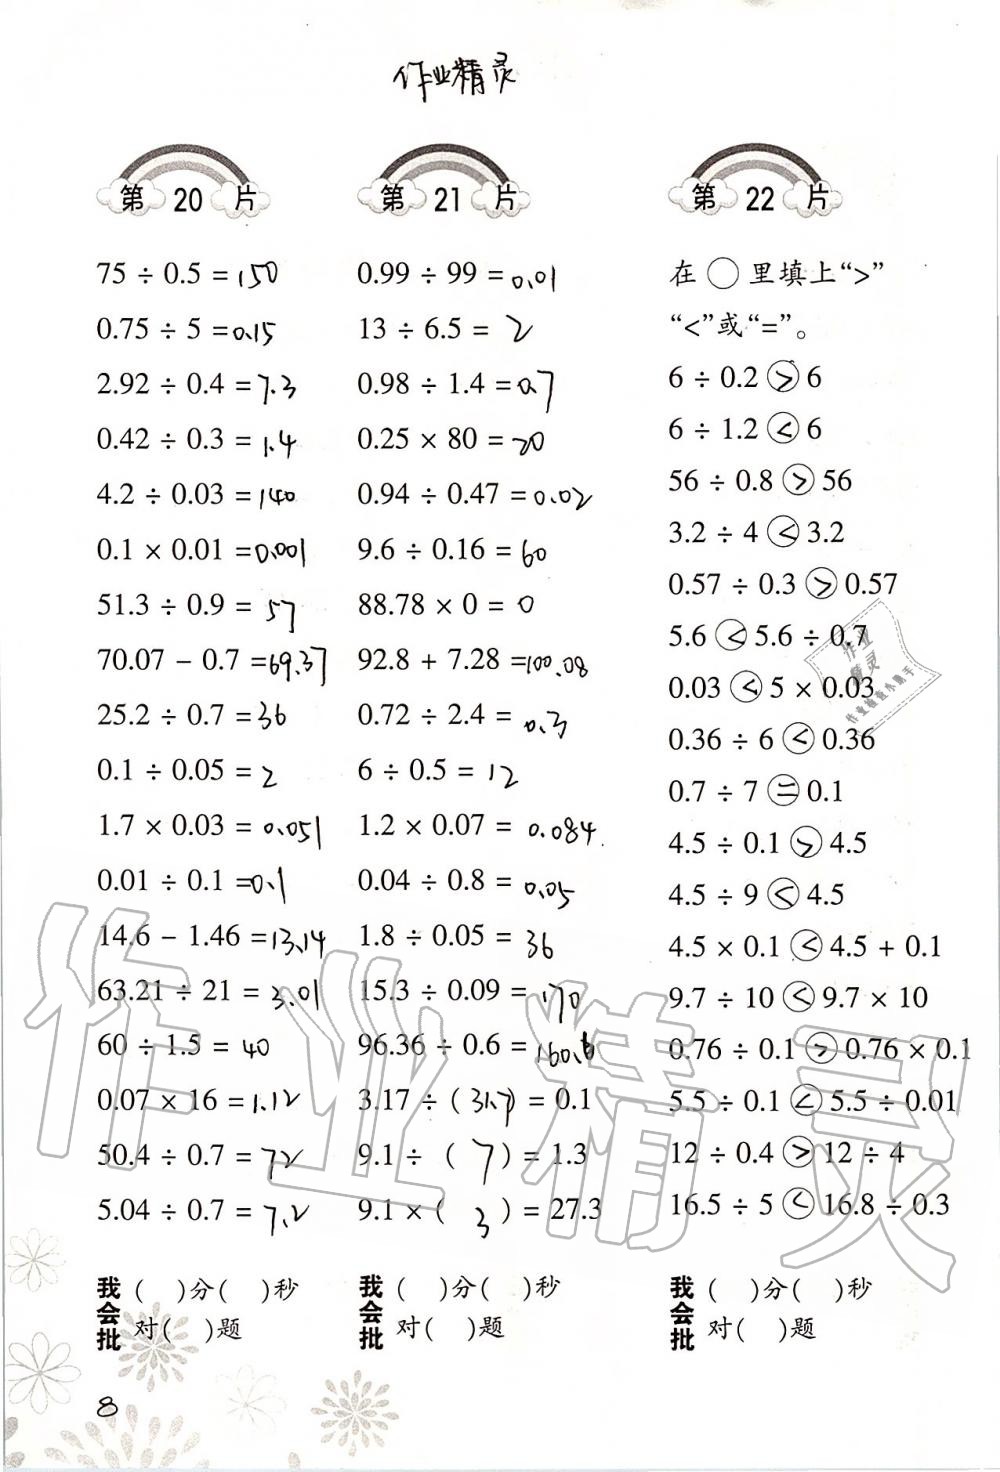 作业精灵
第 20 片
75 ÷ 0.5 = 150
0.75 ÷ 5 = 0.15
2.92 ÷ 0.4 = 7.3
0.42 ÷ 0.3 = 1.4
4.2 ÷ 0.03 = 140
0.1 × 0.01 = 0.001
51.3 ÷ 0.9 = 57
70.07 − 0.7 = 69.37
25.2 ÷ 0.7 = 36
0.1 ÷ 0.05 = 2
1.7 × 0.03 = 0.051
0.01 ÷ 0.1 = 0.1
14.6 − 1.46 = 13.14
63.21 ÷ 21 = 3.01
60 ÷ 1.5 = 40
0.07 × 16 = 1.12
50.4 ÷ 0.7 = 72
5.04 ÷ 0.7 = 7.2
我会批
( )分( )秒
对( )题
第 21 片
0.99 ÷ 99 = 0.01
13 ÷ 6.5 = 2
0.98 ÷ 1.4 = 0.7
0.25 × 80 = 20
0.94 ÷ 0.47 = 0.02
9.6 ÷ 0.16 = 60
88.78 × 0 = 0
92.8 + 7.28 = 100.08
0.72 ÷ 2.4 = 0.3
6 ÷ 0.5 = 12
1.2 × 0.07 = 0.084
0.04 ÷ 0.8 = 0.05
1.8 ÷ 0.05 = 36
15.3 ÷ 0.09 = 170
96.36 ÷ 0.6 = 160.6
3.17 ÷ ( 31.7 ) = 0.1
9.1 ÷ ( 7 ) = 1.3
9.1 × ( 3 ) = 27.3
我会批
( )分( )秒
对( )题
第 22 片
在 ○ 里填上“>”
“<”或“=”。
6 ÷ 0.2 > 6
6 ÷ 1.2 < 6
56 ÷ 0.8 > 56
3.2 ÷ 4 < 3.2
0.57 ÷ 0.3 > 0.57
5.6 < 5.6 ÷ 0.7
0.03 < 5 × 0.03
0.36 ÷ 6 < 0.36
0.7 ÷ 7 = 0.1
4.5 ÷ 0.1 > 4.5
4.5 ÷ 9 < 4.5
4.5 × 0.1 < 4.5 + 0.1
9.7 ÷ 10 < 9.7 × 10
0.76 ÷ 0.1 > 0.76 × 0.1
5.5 ÷ 0.1 < 5.5 ÷ 0.01
12 ÷ 0.4 > 12 ÷ 4
16.5 ÷ 5 < 16.8 ÷ 0.3
我会批
( )分( )秒
对( )题
作业精灵
8
作业精灵